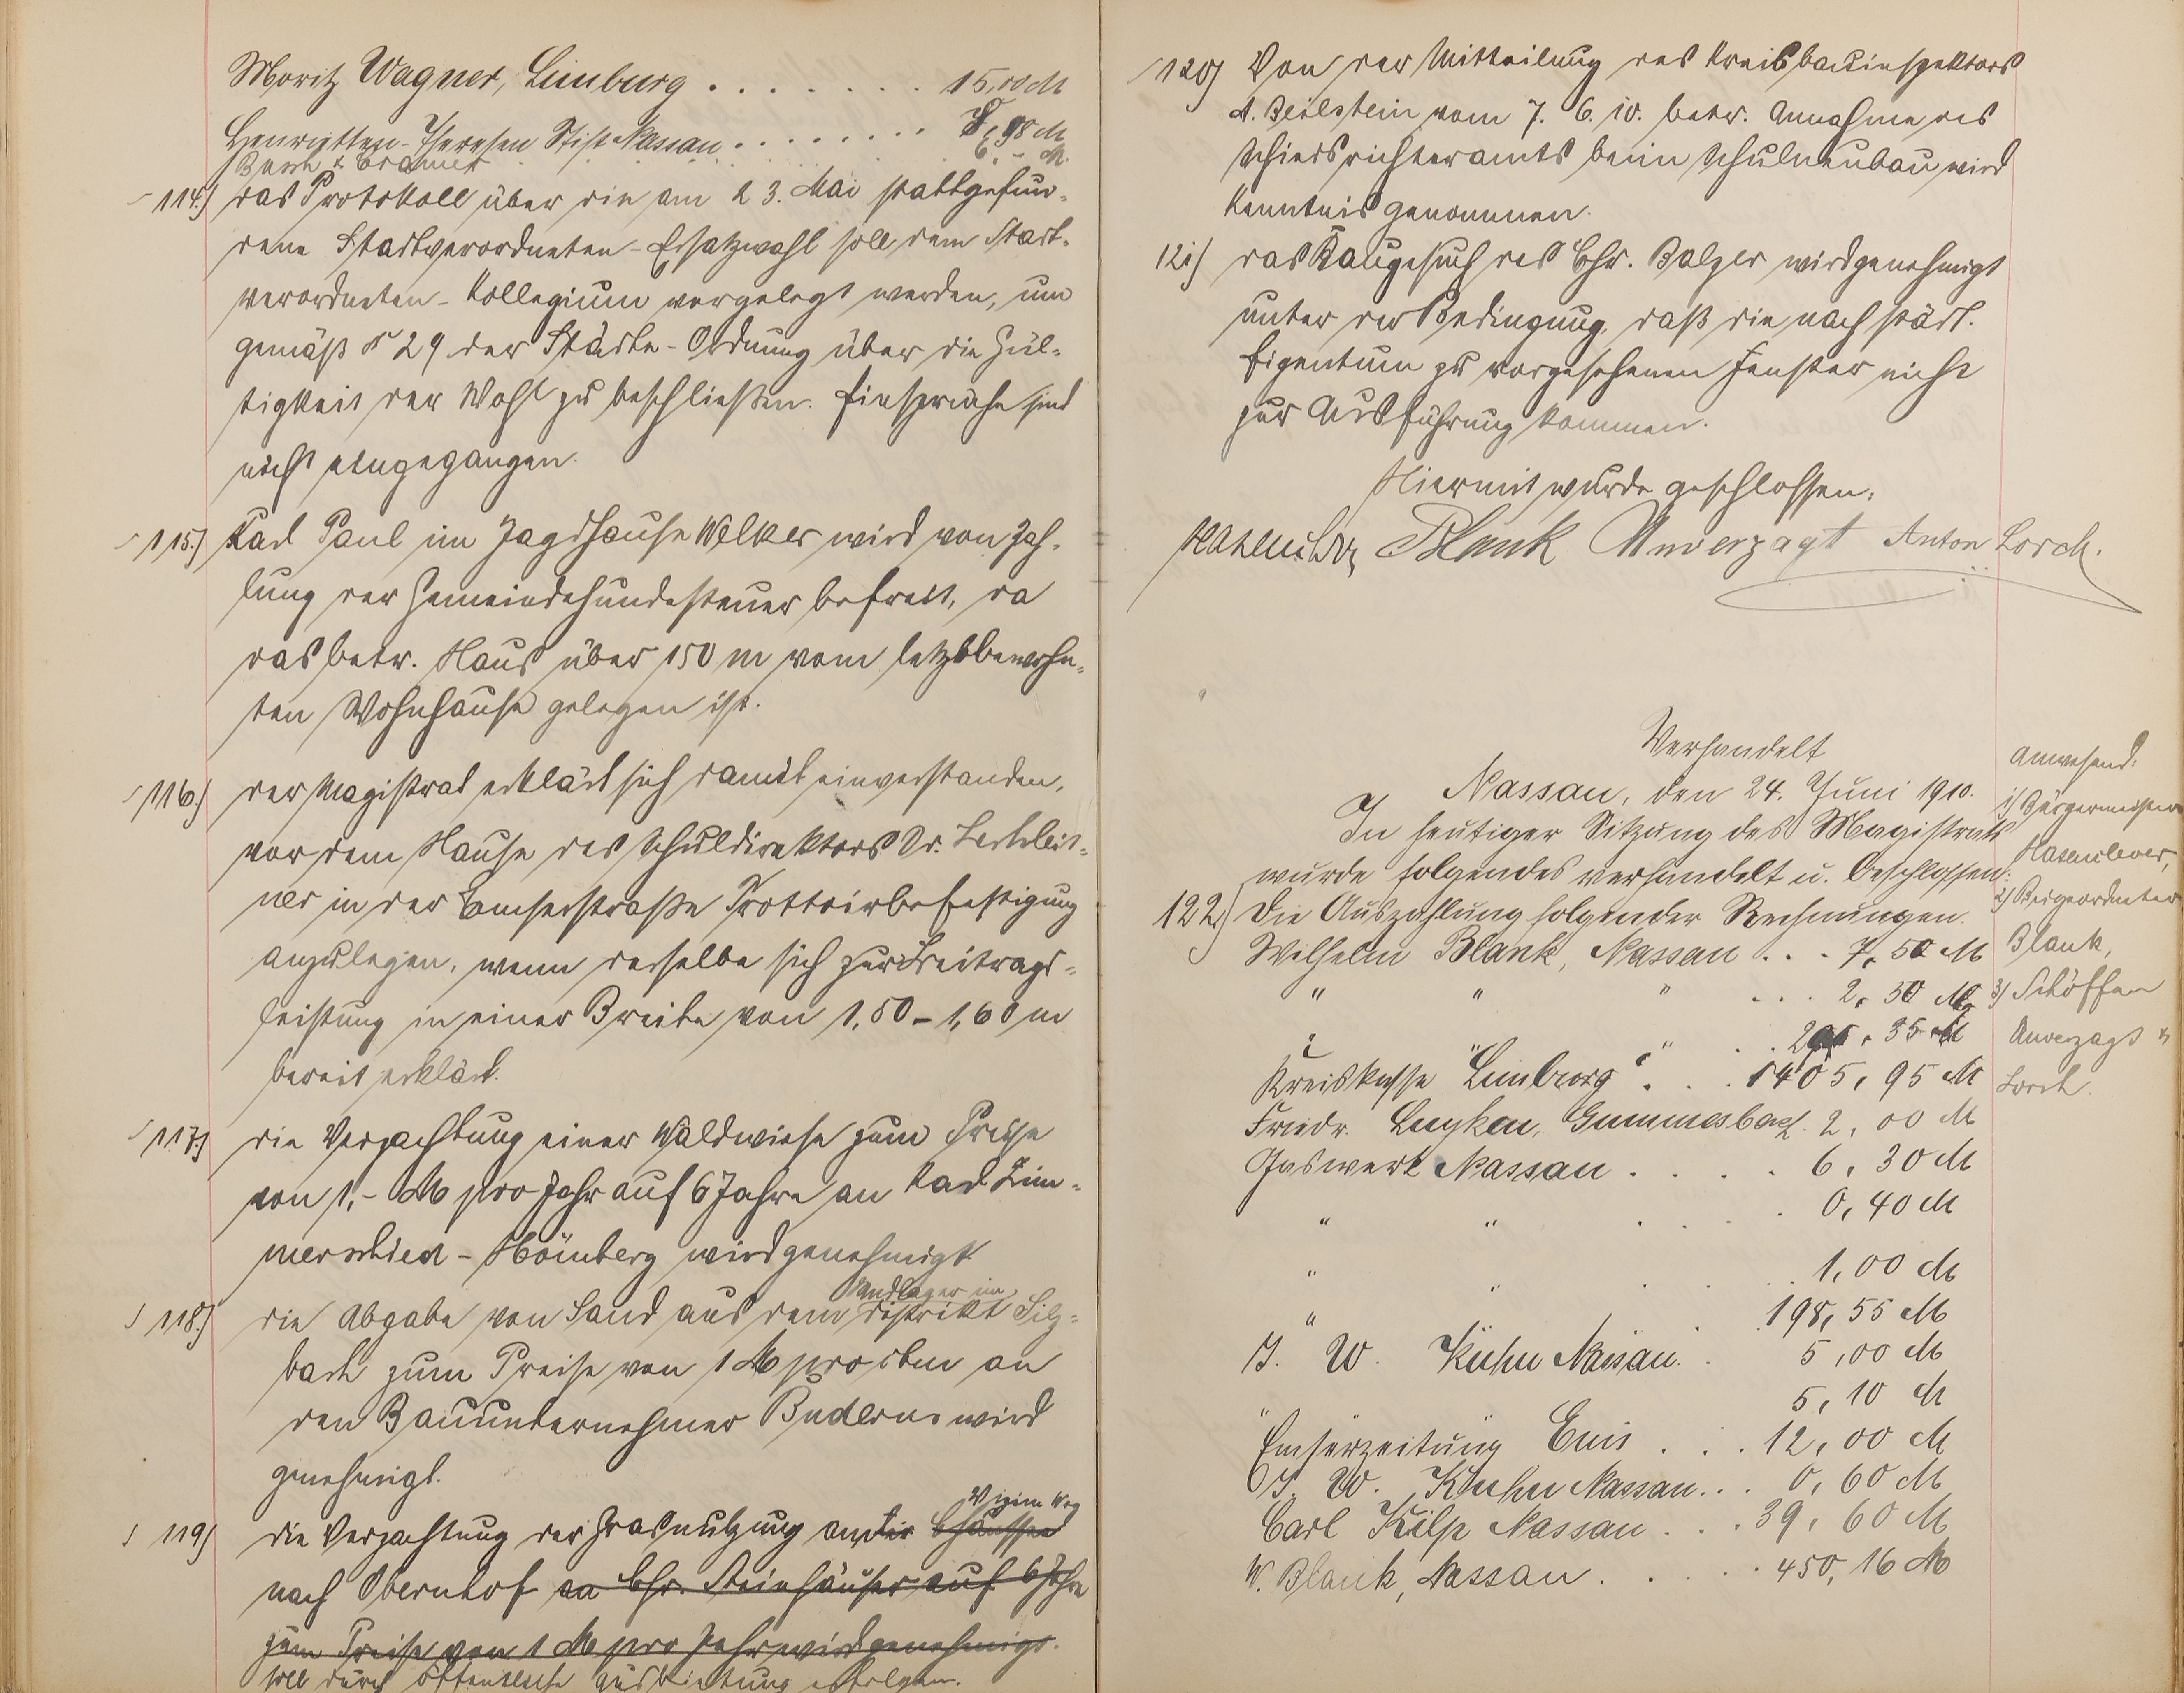 Moritz Wagner, Limburg . . . . . . . . 15,00 M
Henrietten-Theresen Stift Nassau . . . . . . . 8,98 M
Busch & Cramer . . . . . . . 6,- M.
114.) das Protokoll über die am 23. Mai stattgefun-
dene Stadtverordneten-Ersatzwahl soll dem Stadt-
verordneten-Kollegium vorgelegt werden, um
gemäß § 29 der Städte-Ordnung über die Gül-
tigkeit der Wahl zu beschließen. Einsprüche sind
nicht eingegangen.
115.) Karl Paul im Jagdhause Welker wird von Zah-
lung der Gemeindehundesteuer befreit, da
das betr. Haus über 150 m vom letztbewohn-
ten Wohnhause gelegen ist.
116.) der Magistrat erklärt sich damit einverstanden,
vor dem Hause des Schuldirektors Dr.
ner in der Emserstraße Trottoirbefestigung
anzulegen, wenn derselbe sich zur Beitrags-
leistung in einer Breite von 1,50 - 1,60 m
bereit erklärt.
117.) die Verpachtung einer Waldwiese zum Preise
von 1,- M pro Jahr auf 6 Jahre an Karl Zim-
merschied - Hömberg wird genehmigt
118.) die Abgabe von Sand aus dem Sandlager im Distrikt Silz-
bach zum Preise von 1 M pro cbm an
den Bauunternehmer Buderus wird
genehmigt.
119) die Verpachtung der Grasnutzung an der Chaussee Vizinalweg
nach Obernhof an Chr. Steinhäuser auf 6 Jahre
zum Preise von 1 M pro Jahr wird genehmigt.
soll durch öffentliche Ausbietung erfolgen.
120) Von der Mitteilung des Kreisbauinspektors
A. Beilstein vom 7. 6. 10. betr. Annahme des
Schiedsrichteramts beim Schulneubau wird
Kenntnis genommen.
121) das Baugesuch des Chr. Balzer wird genehmigt
unter der Bedingung, daß die nach städt.
Eigentum zu vorgesehenen Fenster nicht
zur Ausführung kommen.
Hiermit wurde geschlossen.
Hasenclever Blank Unverzagt Anton Lorch.
Verhandelt
Nassau, den 24. Juni 1910.
In heutiger Sitzung des Magistrats
wurde folgendes verhandelt u. beschlossen:
122.) Die Auszahlung folgender Rechnungen.
Wilhelm Blank, Nassau . . . 7,50 M
" " " . . . 2,30 M
" " " . . , 35 M
Kreiskasse Limburg . . . 1405,95 M
Friedr. Luyken, Gummersbach. 2,00 M
Gaswerk Nassau . . . . 6,30 M
" " . . . . 0,40 M
" " . . . . 1,00 M
" . 198,55 M
J. W. Kuhn Nassau. . 5,00 M
" " " 5,10 M
Emserzeitung Ems . . . 12,00 M
J. W. Kuhn Nassau. . . 0,60 M
Carl Külp Nassau . . . 39,60 M
W. Blank, Nassau . . . . . 450,16 M
Anwesend:
1) Bürgermeister
Hasenclever,
2) Beigeordneter
Blank,
3) Schöffen
Unverzagt &
Lorch.